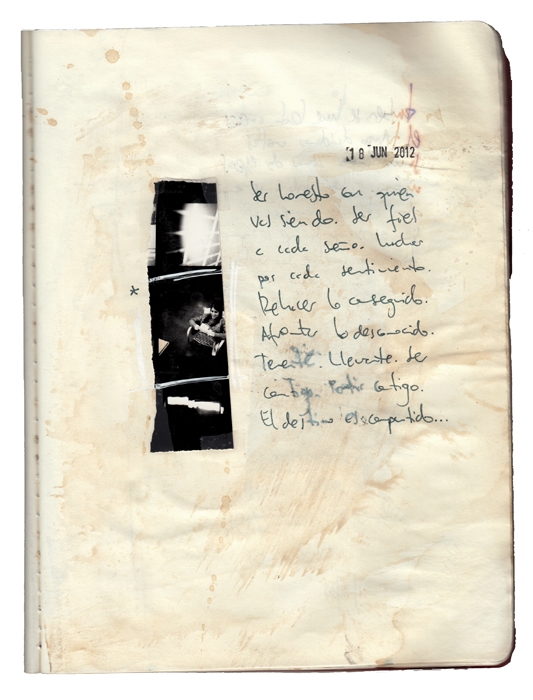 18 JUN 2012
Ser honesto con quien
vas siendo. Ser fiel
a cada sueño. Luchar
por cada sentimento.
Rehacer lo conseguido.
Afrontar lo desconocido.
Tenerte. Llevarte. Ser
contigo. Partir contigo.
El destino es compartido...
*